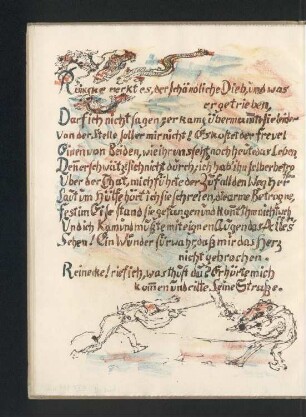 Könige merkt es, der schändliche Dieb, und was
er getrieben,
Darf ich nicht sagen, er kam, übermannte sie leider.
Von der Stelle soll er mir nicht! Es kostet der Frevel
Einen von Beiden, wie ihr uns seht, noch heute das Leben.
Denn er schwätzt sich nicht durch, ich hab' ihn selber betroffen
Über der That, mich führte der Zufall den Weg her.
Laut um Hülfe hört' ich sie schreien, die arme Betrogne,
Fest im Eise stand sie gefangen und konnt' ihm nicht wehren
Und ich kam und mußte mit eignen Augen das Alles
Sehen! Ein Wunder fürwahr, daß mir das Herz
nicht gebrochen.
Reineke! rief ich, was thust du? Er hörte mich
kommen und eilte Seine Straße.